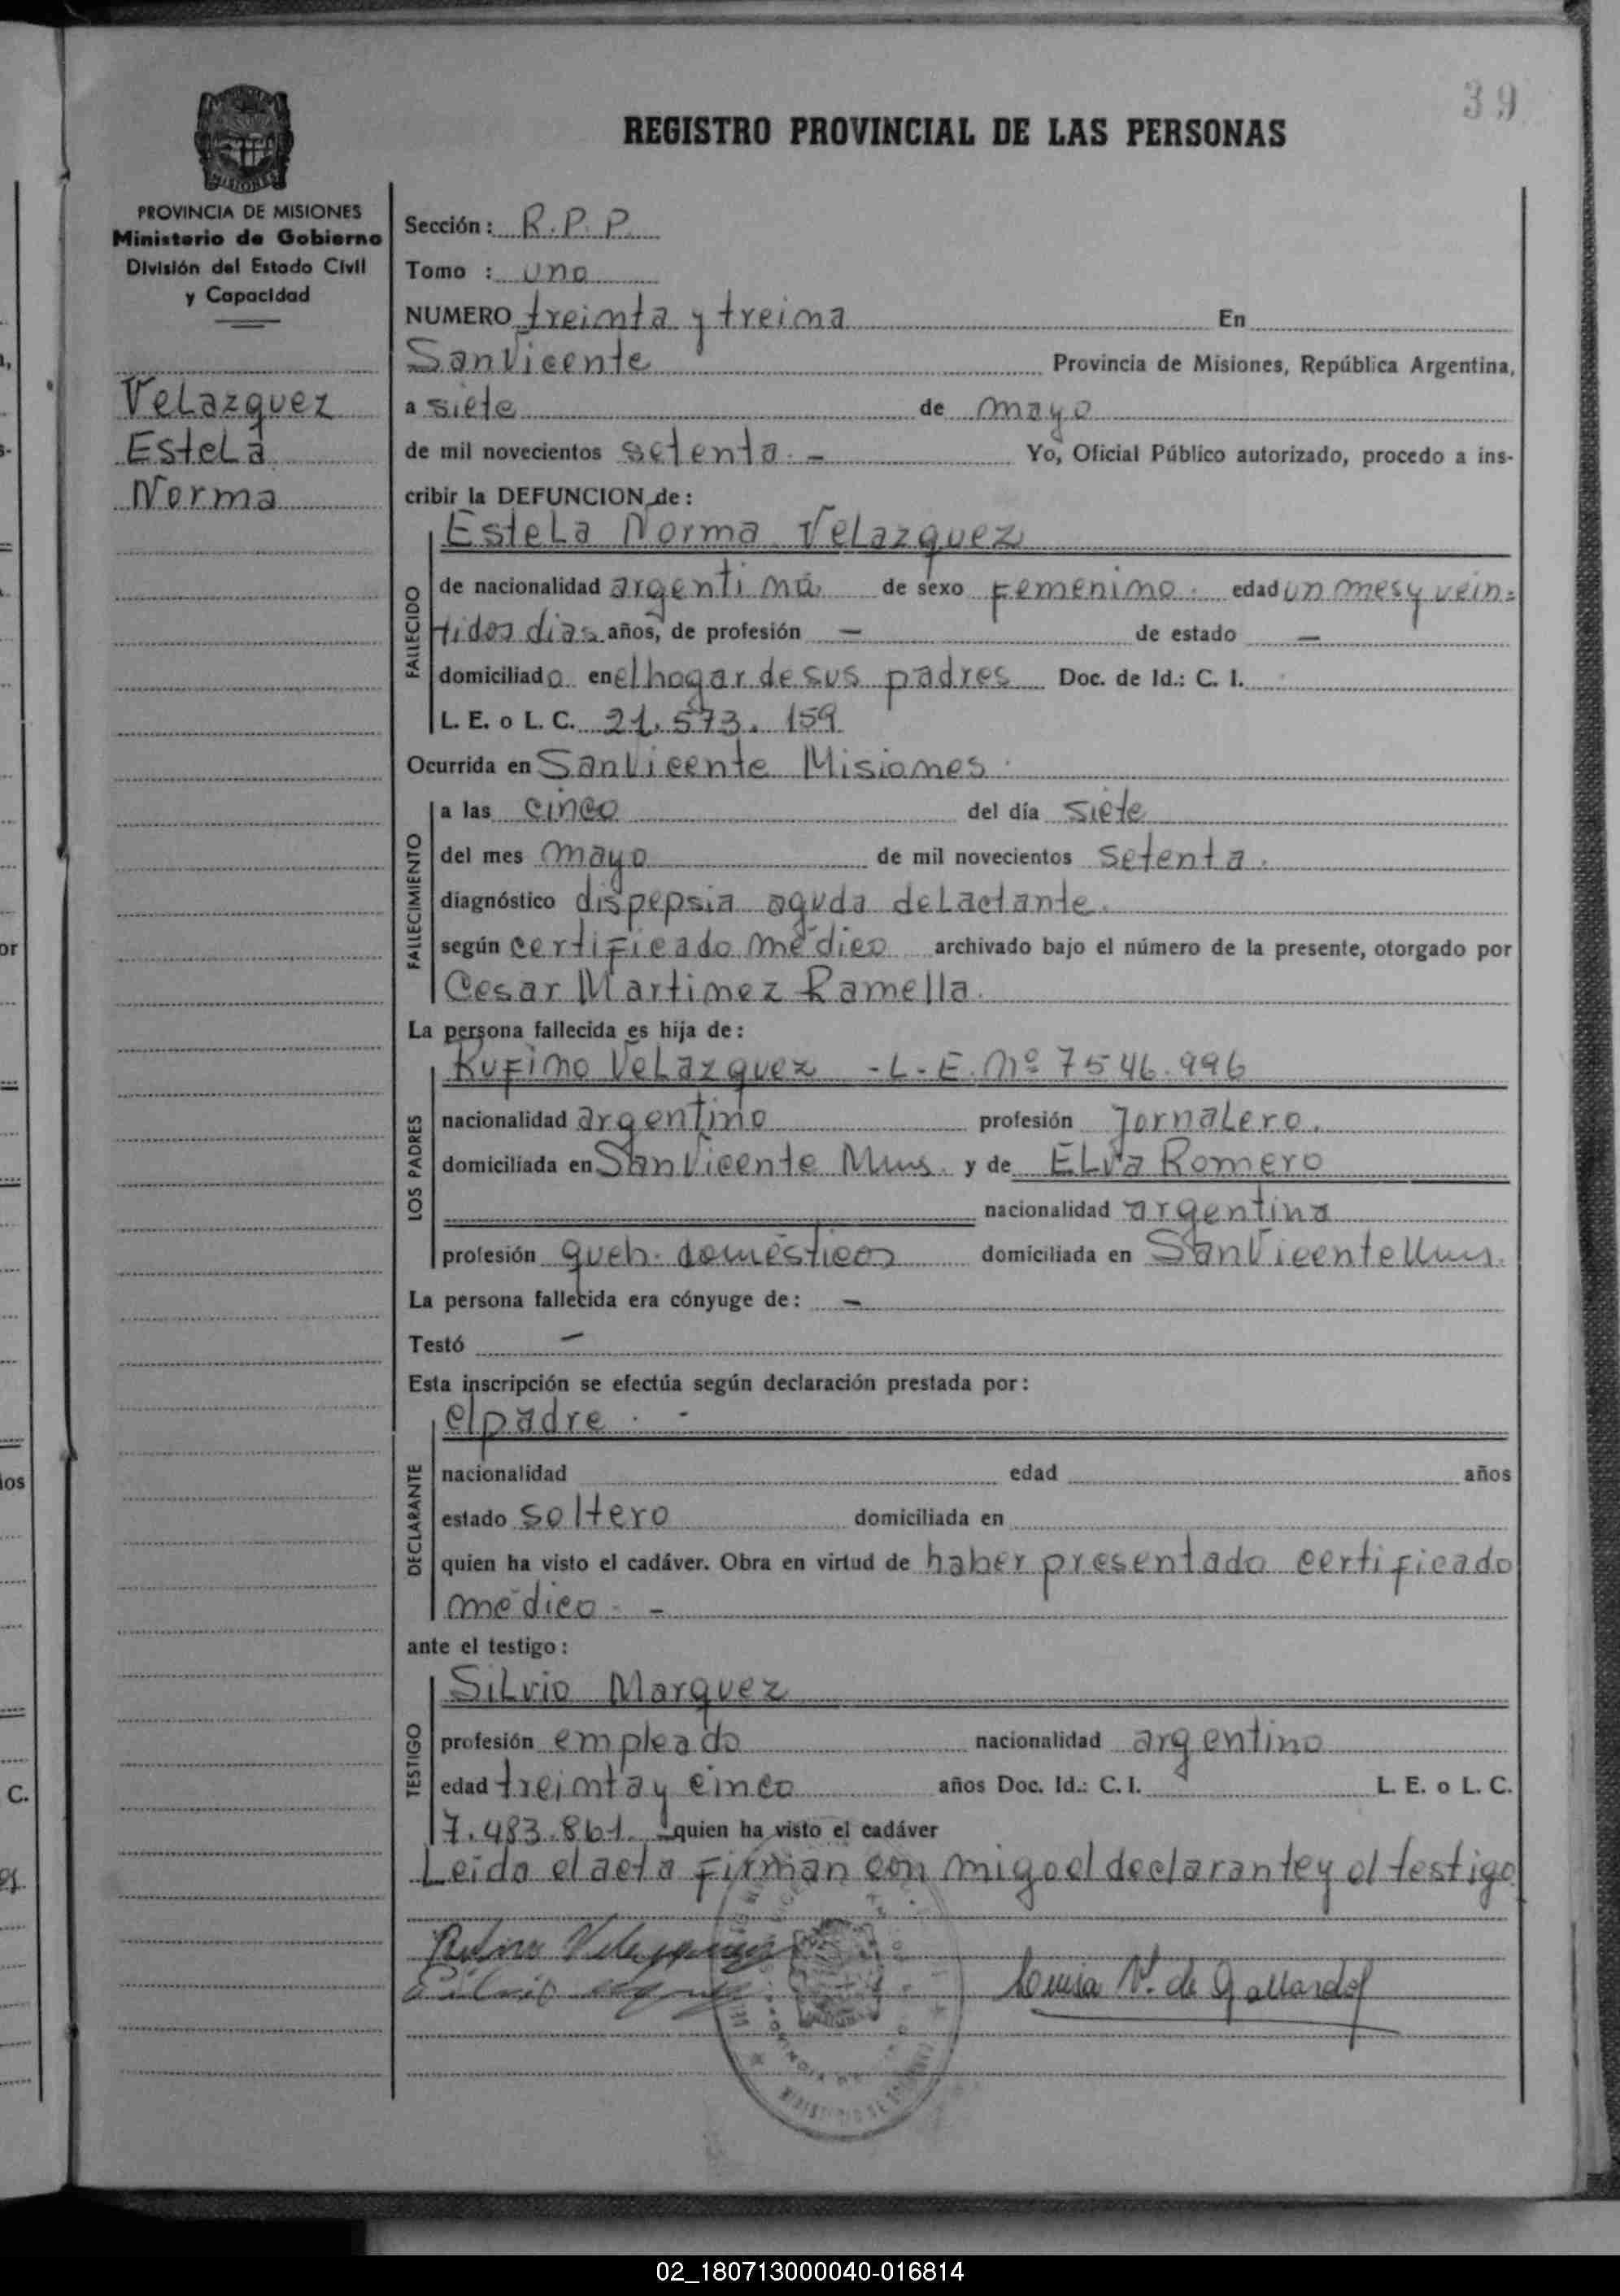 39
REGISTRO PROVINCIAL DE LAS PERSONAS
MISIONES
PROVINCIA DE MISIONES
Ministerio de Gobierno
División del Estado Civil
y Capacidad
Velazquez
Estela
Norma
Sección: R.P.P.
Tomo : uno
NUMERO treinta y treina En
San Vicente Provincia de Misiones, República Argentina,
a siete de mayo
de mil novecientos setenta.- Yo, Oficial Público autorizado, procedo a ins-
cribir la DEFUNCION de:
Estela Norma Velazquez
FALLECIDO
de nacionalidad argentina de sexo Femenino. edad un mes y vein-
tidos dias años, de profesión — de estado —
domiciliado en el hogar de sus padres Doc. de Id.: C. I.
L. E. o L. C. 21.573.159
Ocurrida en San Vicente Misiones.
FALLECIMIENTO
a las cinco del día siete
del mes mayo de mil novecientos setenta.
diagnóstico dispepsia aguda de Lactante.
según certificado médico archivado bajo el número de la presente, otorgado por
Cesar Martinez Ramella.
La persona fallecida es hija de:
LOS PADRES
Rufino Velazquez -L-E. Nº 7546.996
nacionalidad argentino profesión Jornalero.
domiciliada en San Vicente Mnes. y de Elva Romero
nacionalidad argentina
profesión queh. domésticos domiciliada en San Vicente Mnes.
La persona fallecida era cónyuge de: —
Testó —
Esta inscripción se efectúa según declaración prestada por:
DECLARANTE
el padre. -
nacionalidad edad años
estado soltero domiciliada en
quien ha visto el cadáver. Obra en virtud de haber presentado certificado
médico. -
ante el testigo:
TESTIGO
Silvio Marquez
profesión empleado nacionalidad argentino
edad treinta y cinco años Doc. Id.: C. I. L. E. o L. C.
7.483.861.- quien ha visto el cadáver
Leida el acta firman con migo el declarante y el testigo
Rufino Velazquez
Luisa V. de Gallardo
02_180713000040-016814